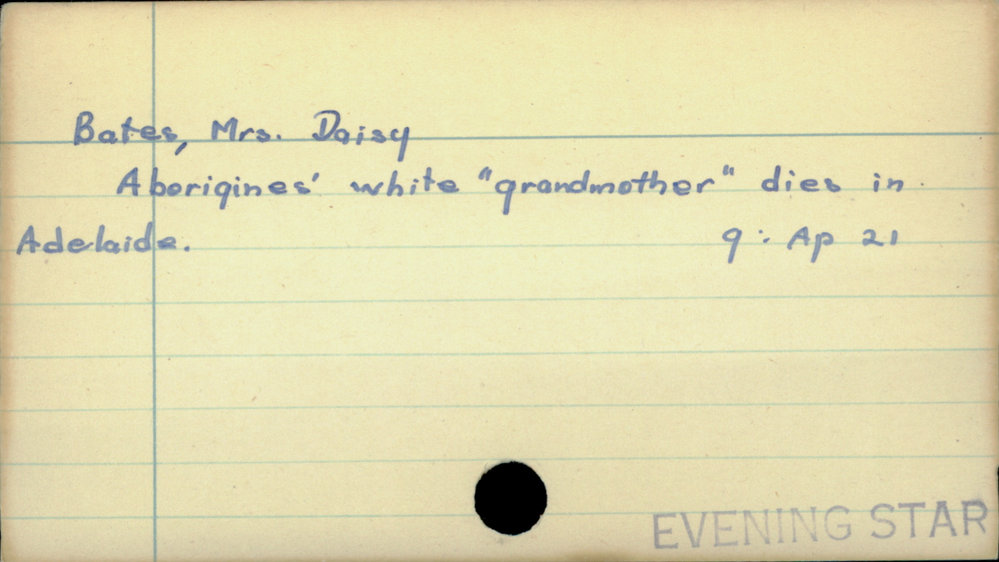 Bates, Mrs. Daisy
Aborigines' white "grandmother" dies in
Adelaide. 9: Ap 21
EVENING STAR